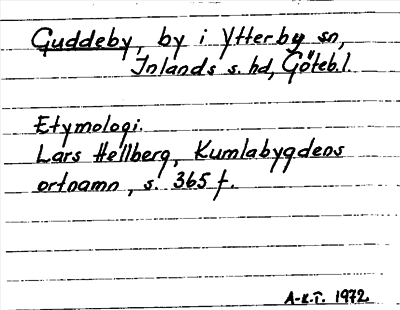 Guddeby, by i Ytterby sn,
Inlands s. hd, Göteb.l.
Etymologi.
Lars Hellberg, Kumlabygdens
ortnamn, s. 365 f.
A-K.T. 1972